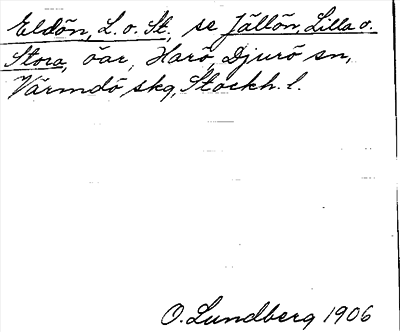 Eldön, L. o. St., se Jällön, Lilla o.
Stora, öar, Harö, Djurö sn,
Värmdö skg, Stockh. l.
O. Lundberg 1906